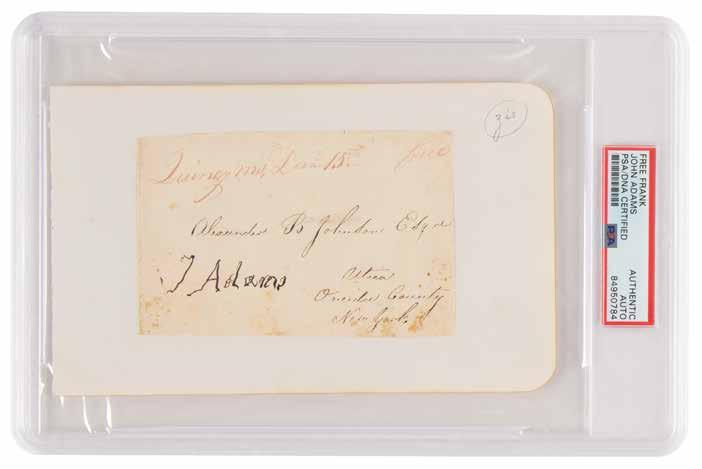 Quincy ms, Jan 15 free
Alexander B Johnson Esqre
J Adams
Utica
Oneida County
New York
FREE FRANK
JOHN ADAMS
PSA/DNA CERTIFIED
PSA
AUTHENTIC
AUTO
84950784